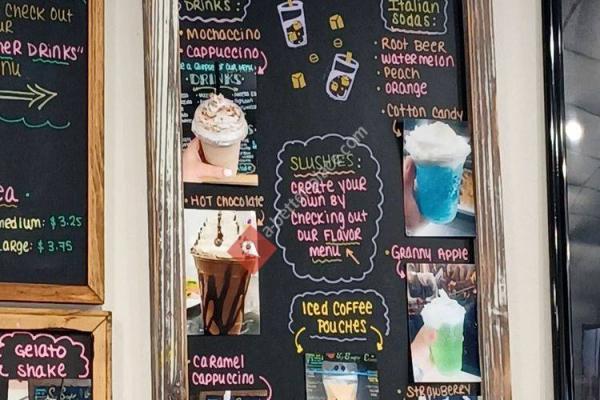 CHECK OUT
OUR
HER DRINKS"
nu
ea.
medium: $3.25
Large: $3.75
Gelato
shake
DRINKS:
• Mochaccino
• Cappuccino
DRINKS
• HOT CHOCOLATE
• CARAMEL
Cappuccino
SLUSHIES:
CREATE YOUR
OWN BY
CHECKING OUT
OUR FLAVOR
MENU
ICED COFFEE
POUCHES
Italian
SODAS:
• ROOT BEER
WATERMELON
• Peach
ORANGE
• Cotton Candy
• GRANNY APPLE
• STRAWBERRY